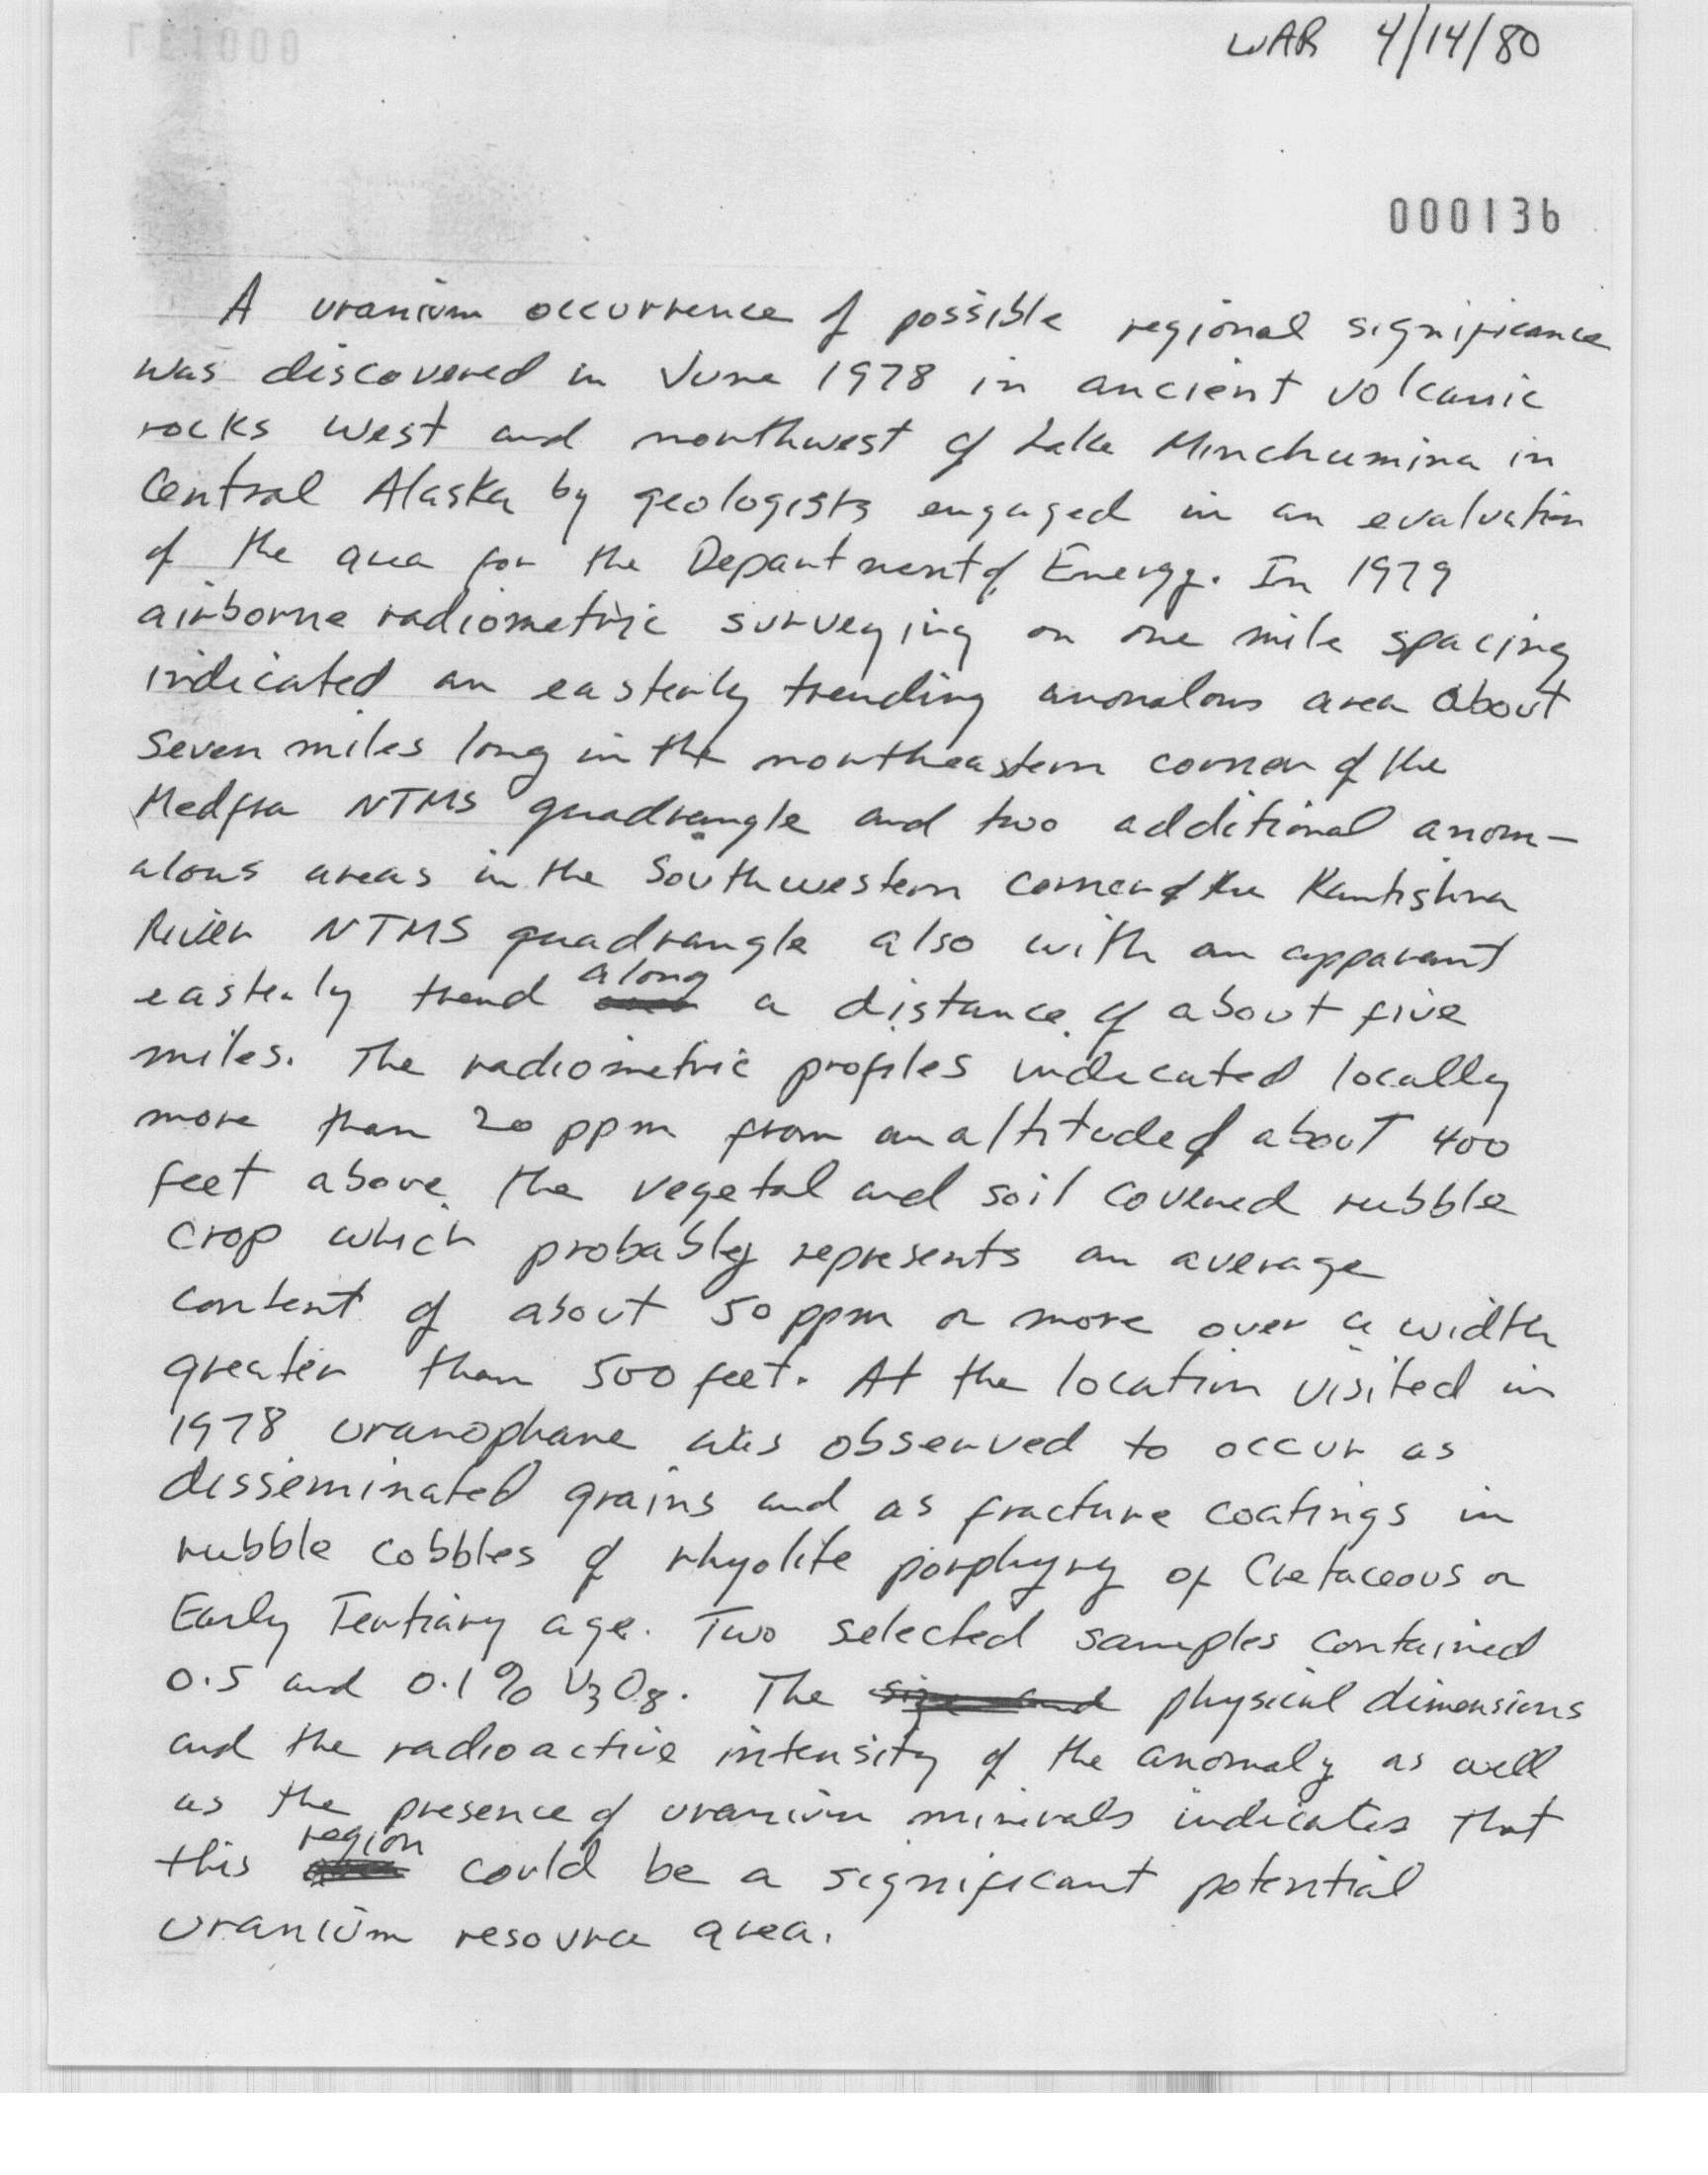 WAR 4/14/80
000136
A uranium occurrence of possible regional significance
was discovered in June 1978 in ancient volcanic
rocks west and northwest of Lake Minchumina in
Central Alaska by geologists engaged in an evaluation
of the area for the Department of Energy. In 1979
airborne radiometric surveying on one mile spacing
indicated an easterly trending anomalous area about
seven miles long in the northeastern corner of the
Medfra NTMS quadrangle and two additional anom-
alous areas in the Southwestern corner of the Kantishna
River NTMS quadrangle also with an apparant
easterly trend along a distance of about five
miles. The radiometric profiles indicated locally
more than 20 ppm from an altitude of about 400
feet above the vegetal and soil covered rubble
crop which probably represents an average
content of about 50 ppm or more over a width
greater than 500 feet. At the location visited in
1978 uranophane was observed to occur as
disseminated grains and as fracture coatings in
rubble cobbles of rhyolite porphyry of Cretaceous or
Early Tertiary age. Two selected samples contained
0.5 and 0.1% U3O8. The size and physical dimensions
and the radioactive intensity of the anomaly as well
as the presence of uranium minerals indicates that
this region could be a significant potential
uranium resource area.